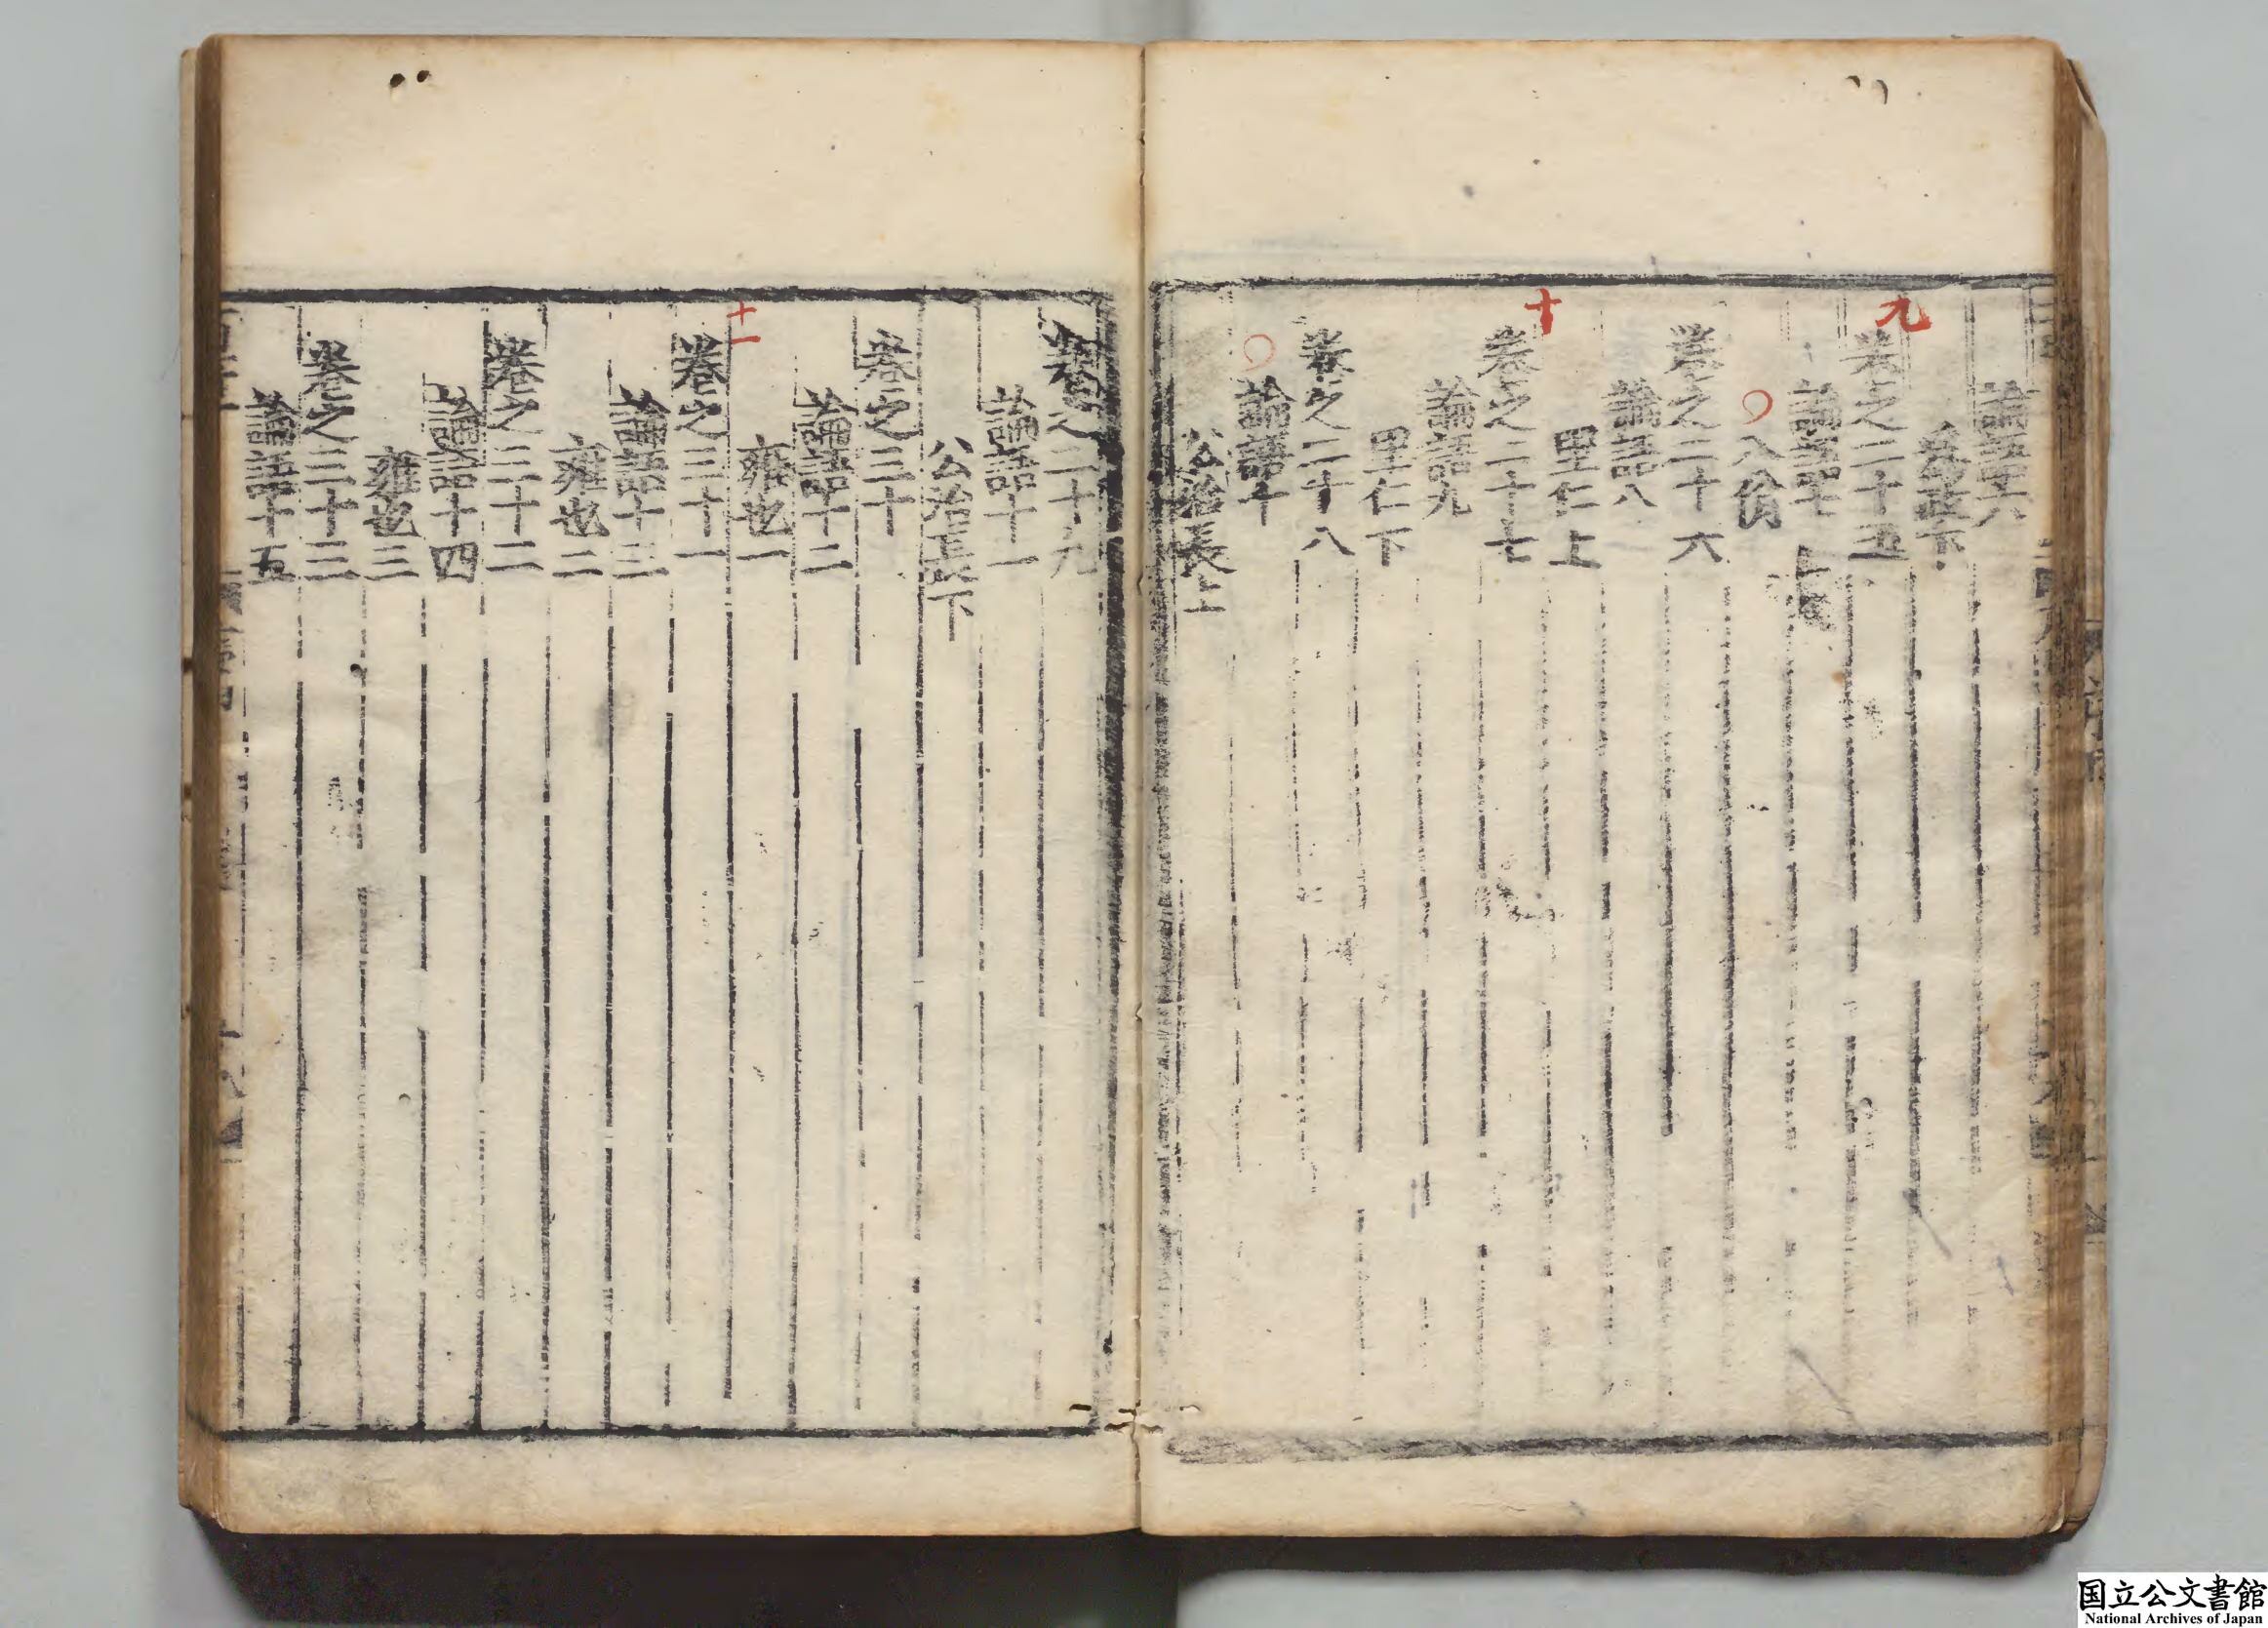 論語六
爲政下
九
卷之二十五
論語七
八佾
上
卷之二十六
論語八
里仁上
十
卷之二十七
論語九
里仁下
卷之二十八
論語十
公冶長上
卷之二十九
論語十一
公冶長下
卷之三十
論語十二
雍也一
十一
卷之三十一
論語十三
雍也二
卷之三十二
論語十四
雍也三
卷之三十三
論語十五
国立公文書館
National Archives of Japan